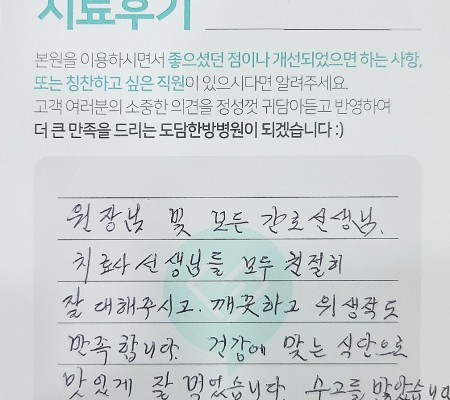 치료후기
본원을 이용하시면서 좋으셨던 점이나 개선되었으면 하는 사항,
또는 칭찬하고 싶은 직원이 있으시다면 알려주세요.
고객 여러분의 소중한 의견을 정성껏 귀담아듣고 반영하여
더 큰 만족을 드리는 도담한방병원이 되겠습니다 :)
원장님 및 모든 간호선생님,
치료사 선생님들 모두 친절히
잘 대해주시고. 깨끗하고 위생작도
만족합니다. 건강에 맞는 식단으로
맛있게 잘 먹었습니다. 수고를 많았습니다